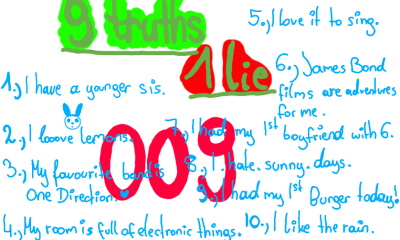 9 truths
1 lie
1., I have a younger sis.
2., I looove lemons.
3., My favourite band is
One Direction.
4., My room is full of electronic things.
5., I love it to sing.
6., James Bond
films are adventures
for me.
7., I had my 1st boyfriend with 6.
8., I hate sunny days.
9., I had my 1st Burger today!
10., I like the rain.
009